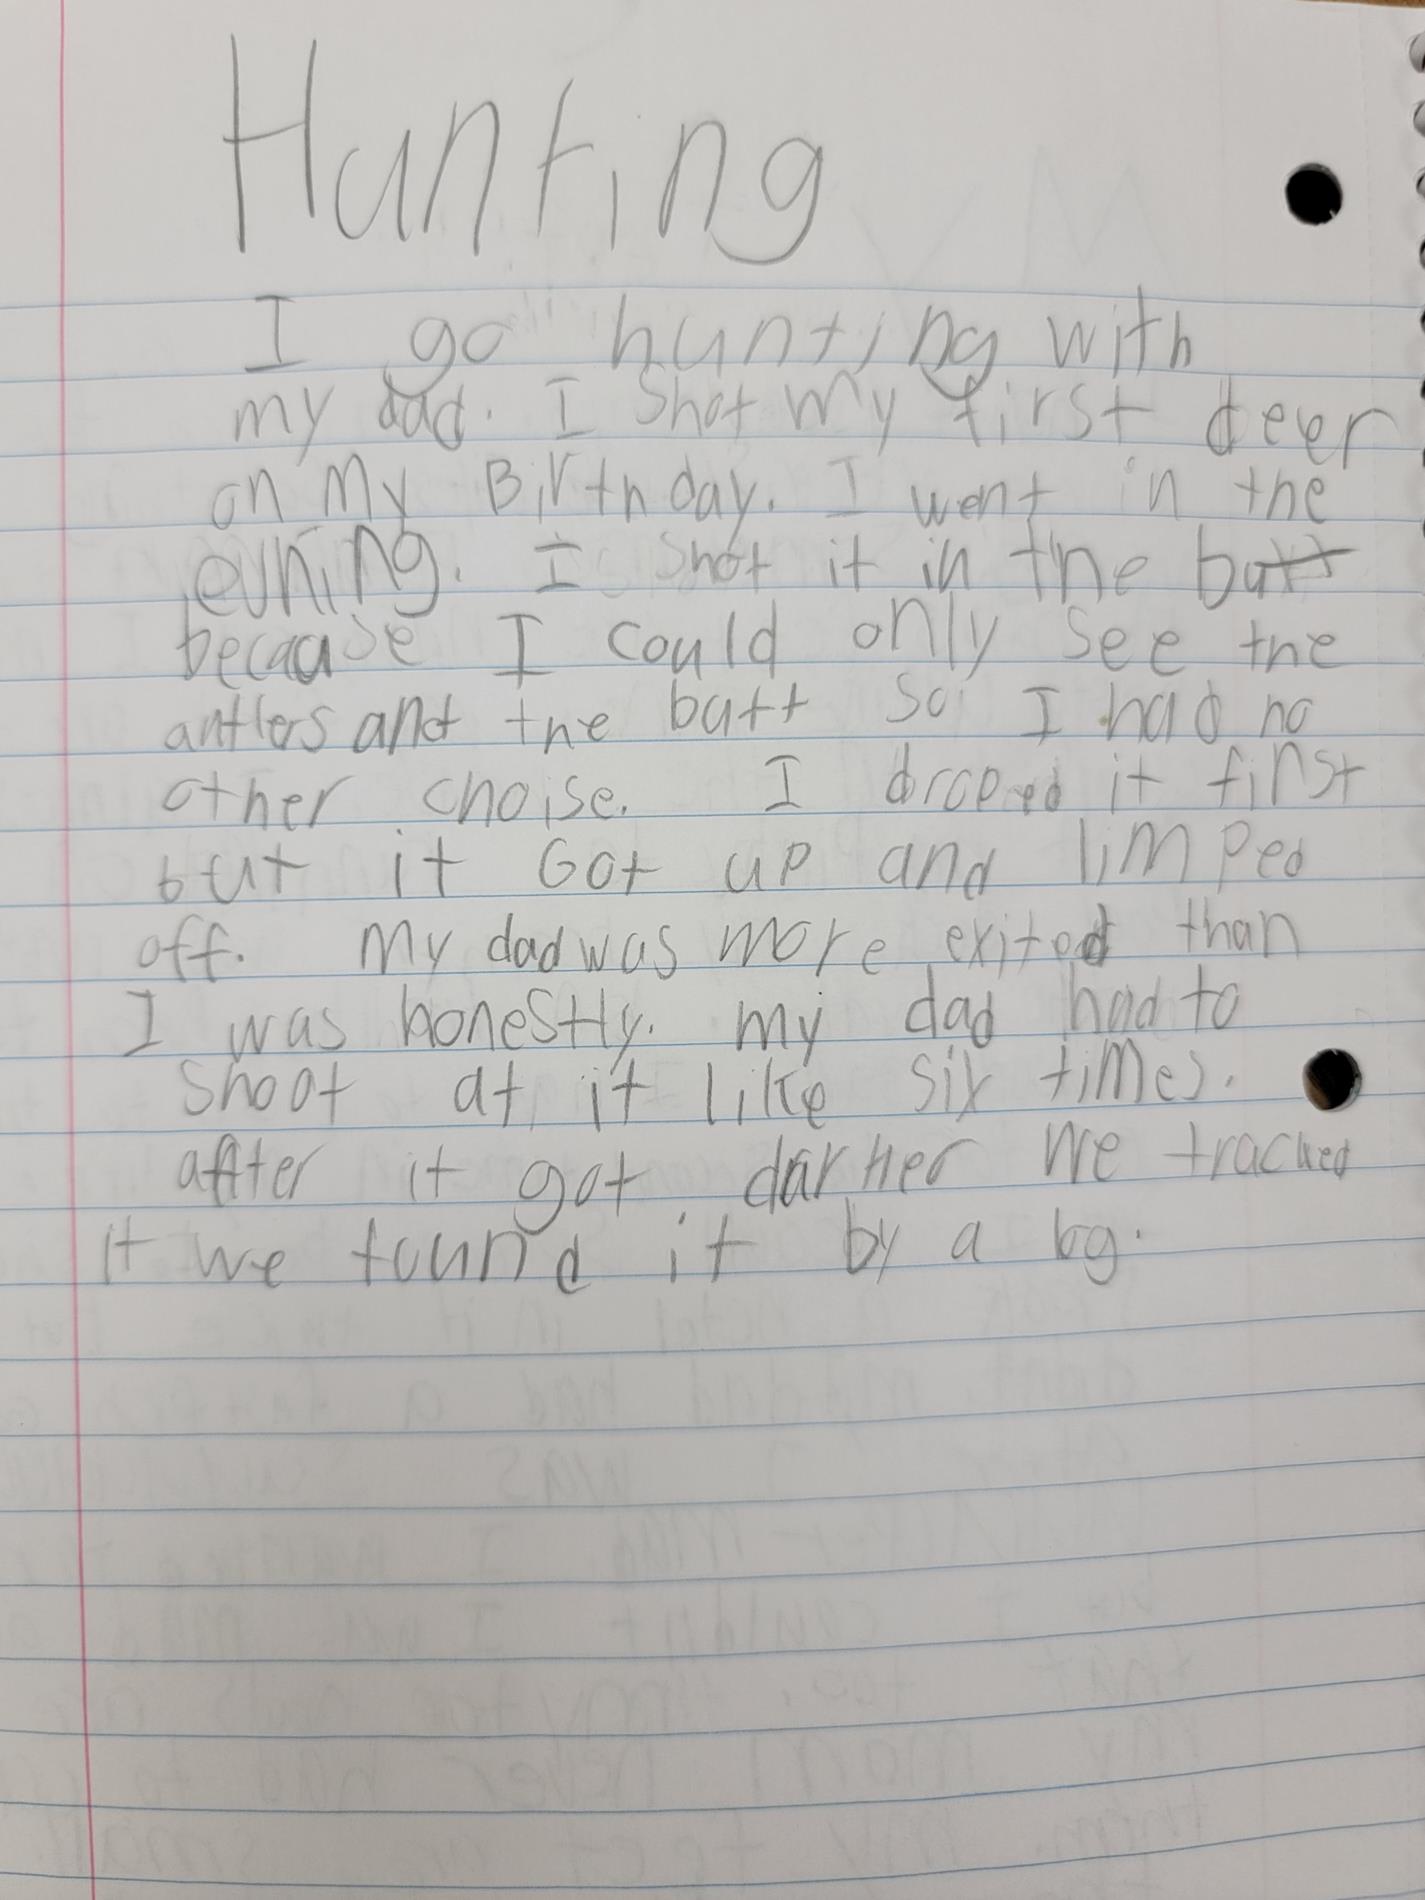 Hunting
I go hunting with
my dad. I shot my first deer
on my Birthday. I went in the
evning. I shot it in the butt
because I could only see the
antlers and the butt so I had no
other choise. I droped it first
but it Got up and limped
off. My dad was more exited than
I was honestly. my dad had to
shoot at it like six times.
after it got darker we tracked
it we found it by a